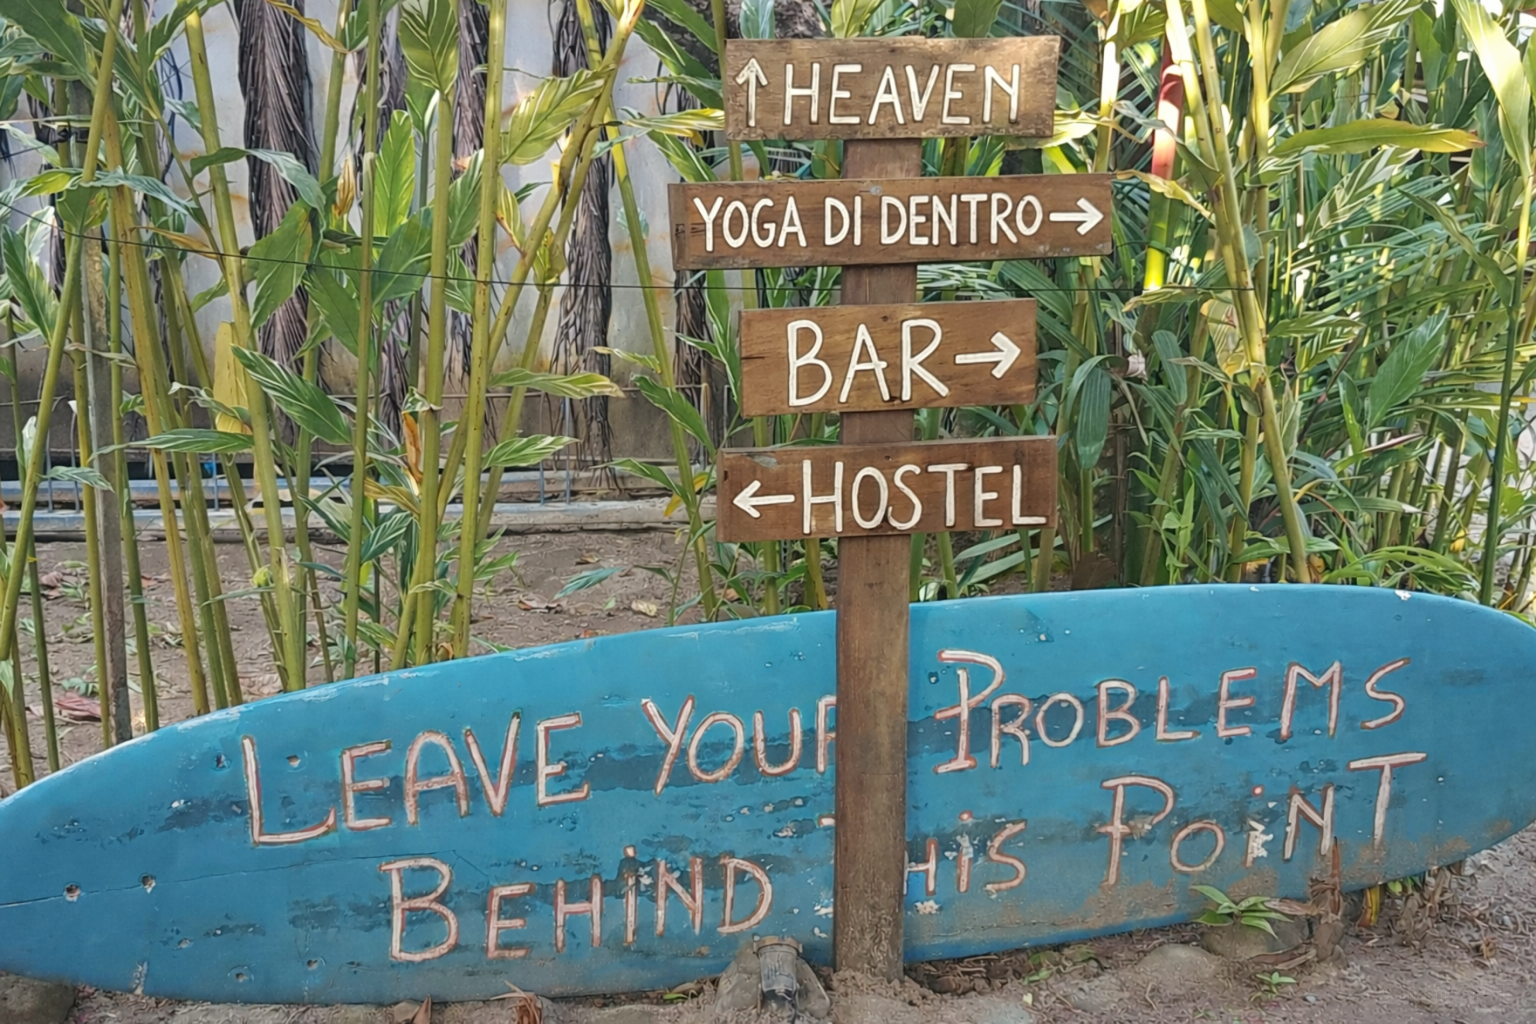 ↑ HEAVEN
YOGA DI DENTRO →
BAR →
← HOSTEL
LEAVE YOUR PROBLEMS
BEHIND THIS POINT